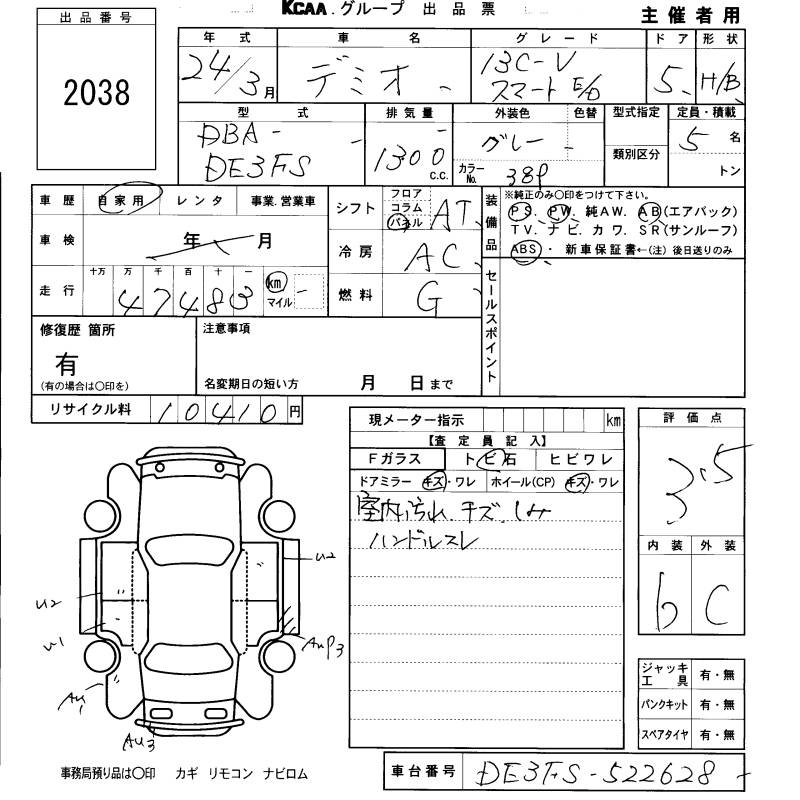 KCAA.グループ 出品票
主催者用
出品番号
2038
年式 車名 グレード ドア 形状
24/3月 デミオ 13C-V スマートE/D 5 H/B
型式 排気量 外装色 色替 型式指定 定員・積載
DBA- DE3FS 1300 c.c. グレー 類別区分 5名
カラーNo. 38P トン
車歴 自家用 レンタ 事業.営業車
シフト フロア コラム パネル AT
装備品 ※純正のみ○印をつけて下さい。
PS、PW、純AW、AB(エアバック)
TV、ナビ、カワ、SR(サンルーフ)
ABS・新車保証書←(注)後日送りのみ
車検 年 月
冷房 AC
走行 十万 万 千 百 十 一
47483 km マイル
燃料 G
セールスポイント
修復歴 箇所 注意事項
有
(有の場合は○印を) 名変期日の短い方 月 日まで
リサイクル料 10410円
現メーター指示 km
評価点
【査定員記入】
Fガラス トビ石 ヒビワレ
3.5
ドアミラー キズ・ワレ ホイール(CP) キズ・ワレ
室内汚れ.キズ.しみ
ハンドルスレ
内装 外装
b C
U2
U2
U1
AUP3
AU1
AU3
ジャッキ工具 有・無
パンクキット 有・無
スペアタイヤ 有・無
事務局預り品は○印 カギ リモコン ナビロム
車台番号 DE3FS-522628